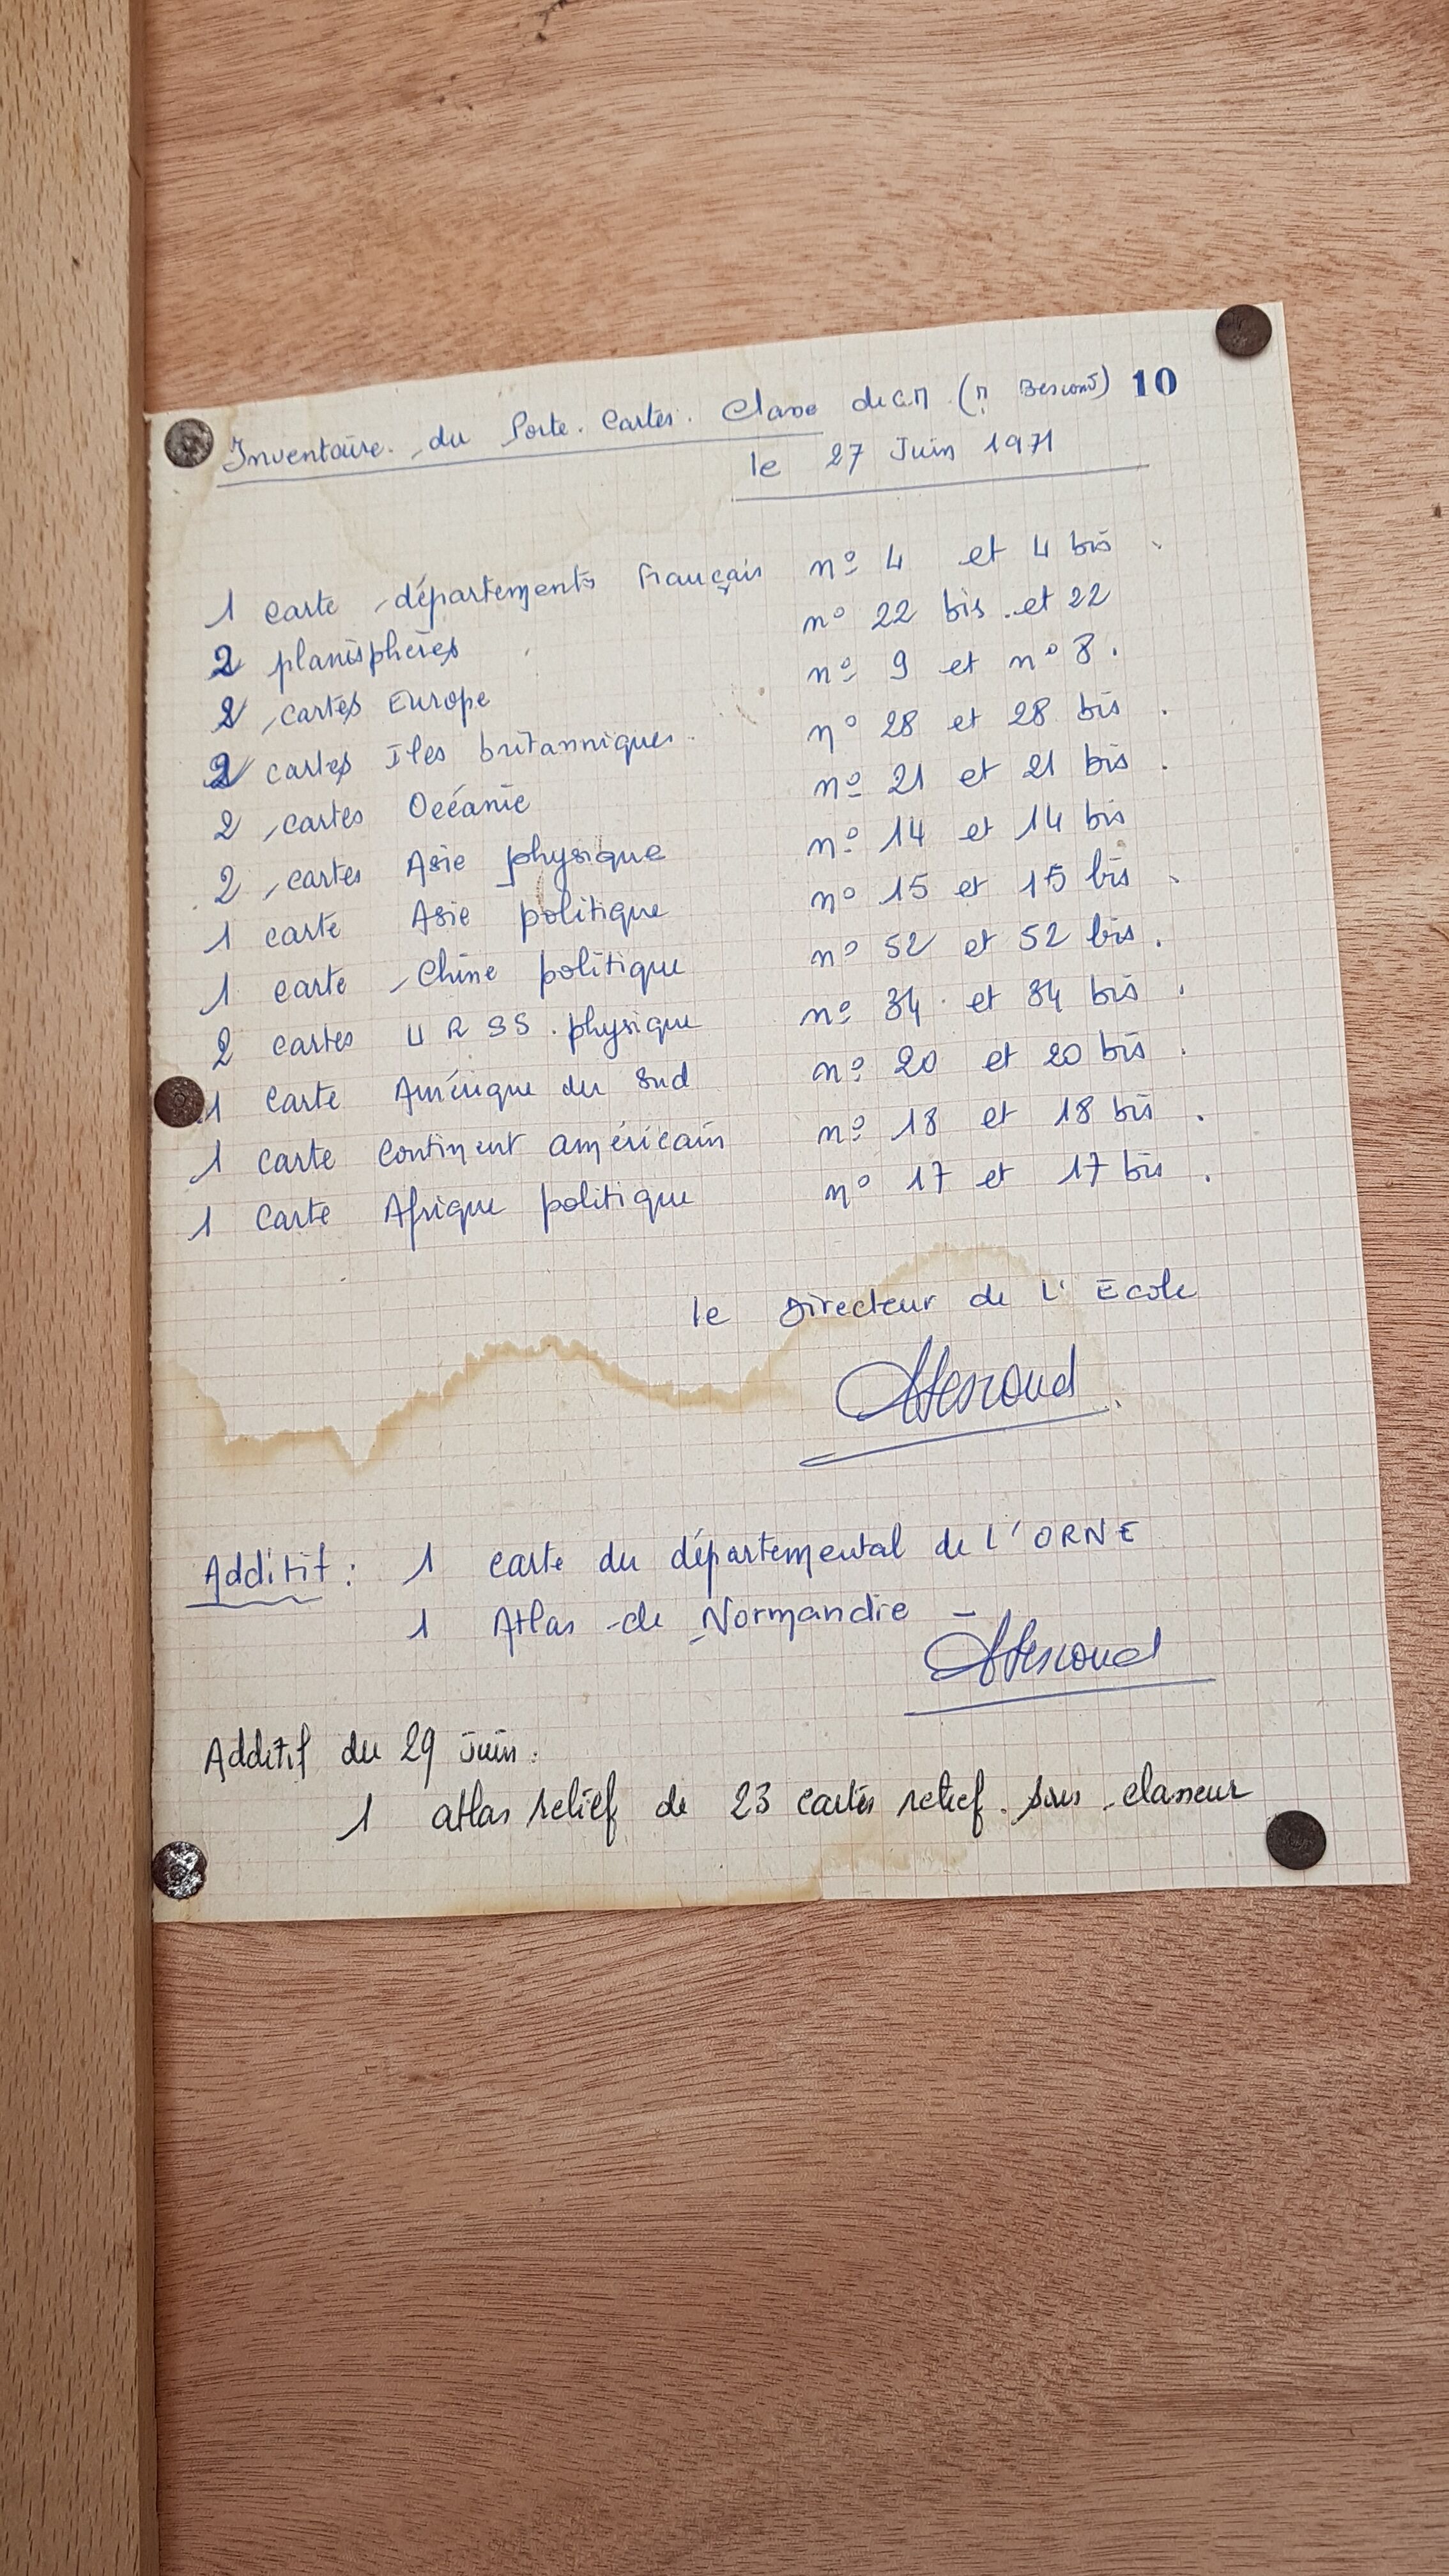 Inventaire du Porte. Cartes. Classe de CM (M. Bescond) 10
le 27 Juin 1971
1 carte départements français n° 4 et 4 bis.
2 planisphères n° 22 bis et 22
2 cartes Europe n° 9 et n° 8.
2 cartes Iles britanniques n° 28 et 28 bis.
2 cartes Océanie n° 21 et 21 bis.
2 cartes Asie physique n° 14 et 14 bis
1 carte Asie politique n° 15 et 15 bis.
1 carte Chine politique n° 52 et 52 bis.
2 cartes URSS. physique n° 34 et 34 bis.
1 carte Amérique du Sud n° 20 et 20 bis.
1 carte continent américain n° 18 et 18 bis.
1 carte Afrique politique n° 17 et 17 bis.
le Directeur de L'Ecole
Additif : 1 carte du départemental de L'ORNE
1 Atlas de Normandie -
Additif du 29 juin.
1 atlas relief de 23 cartes relief. sous